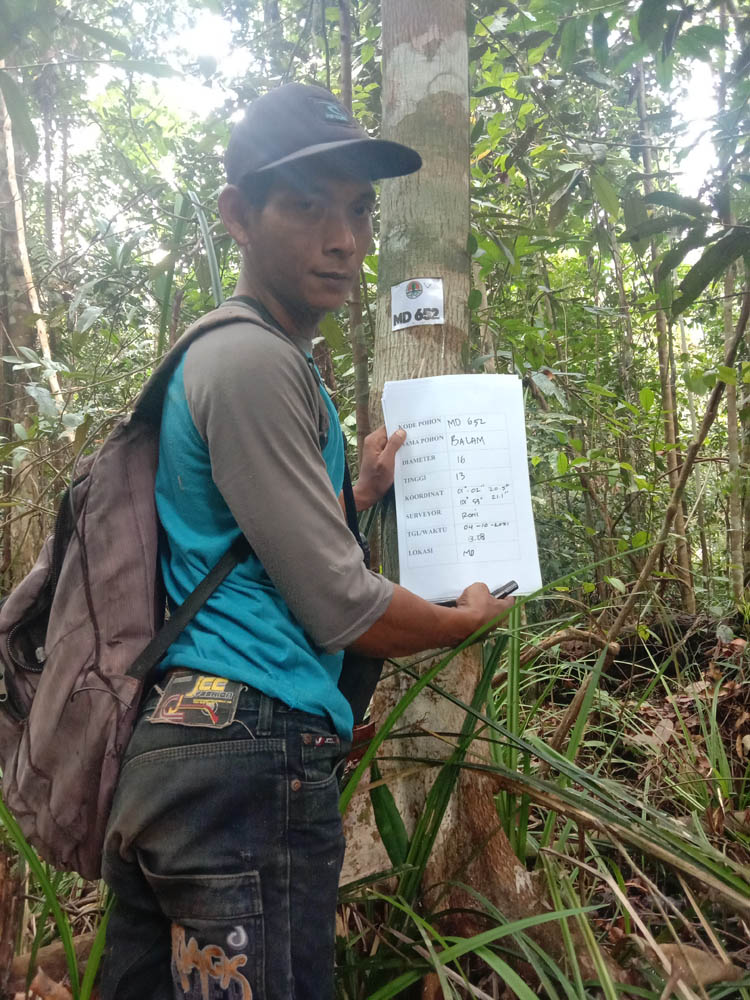 MD 652
KODE POHON MD 652
NAMA POHON BALAM
DIAMETER 16
TINGGI 13
KOORDINAT 01° 02" 20.5"
101° 59' 21.1"
SURVEYOR Roni
TGL/WAKTU 04-10-2021
13.58
LOKASI MD
JEE
FASHION